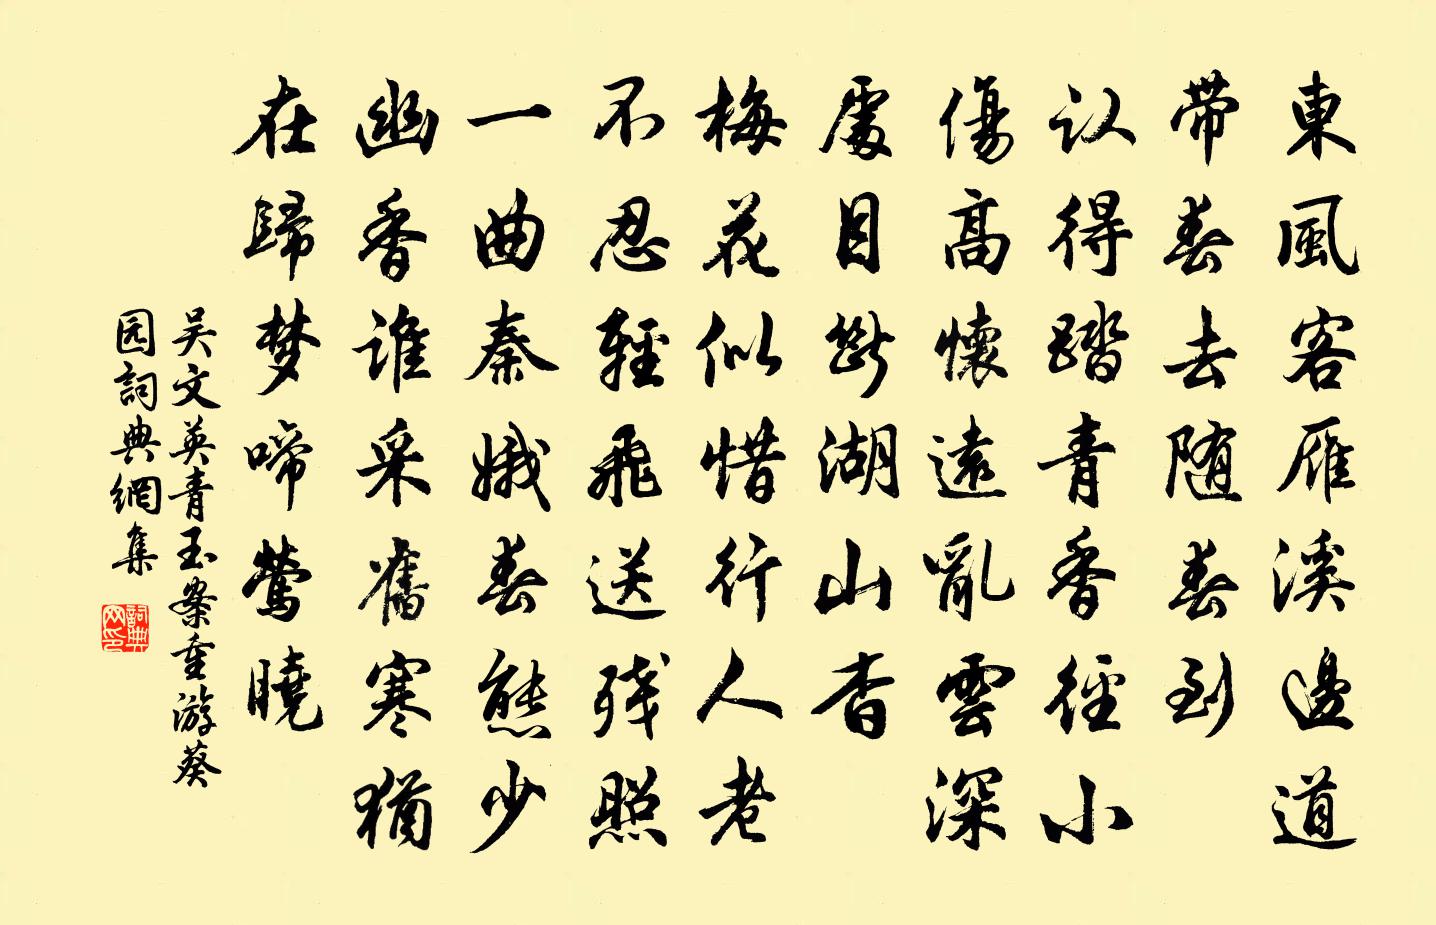 東風客雁溪邊道
带春去随春到
认得踏青香徑小
傷高懷遠亂雲深
處目断湖山杳
梅花似惜行人老
不忍輕飛送残照
一曲秦娥春態少
幽香谁采舊寒猶
在歸梦啼鶯曉
吴文英青玉案重游葵
园詞典網集
詞典网印